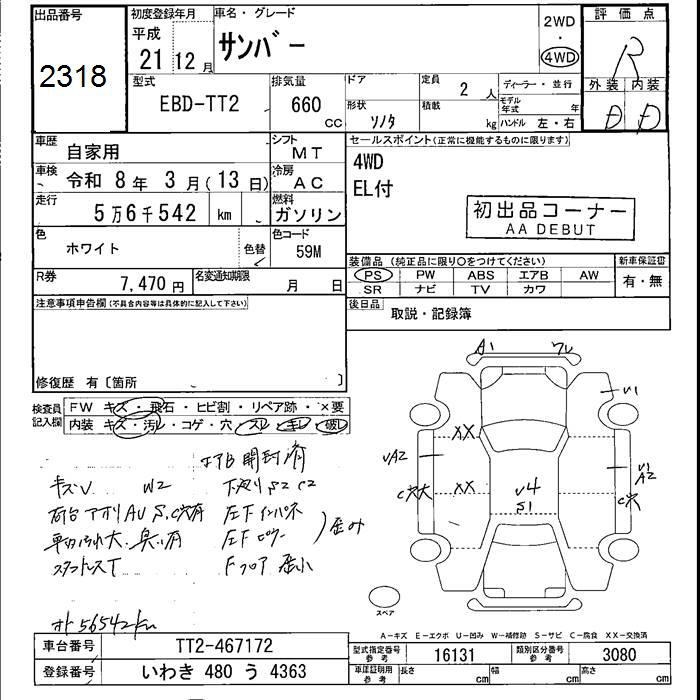 出品番号
2318
初度登録年月
平成
21 12 月
車名・グレード
サンバー
2WD
・
4WD
評価点
R
外装 内装
D D
型式
EBD-TT2
排気量
660
CC
ドア
形状
バン
定員
2 人
積載
kg
ディーラー・並行
モデル
年式 年
ハンドル 左・右
車歴
自家用
シフト
MT
車検
令和 8 年 3 月 ( 13 日)
冷房
AC
走行
5 万 6 千 542 km
燃料
ガソリン
色
ホワイト
色替
色コード
59M
R券
7,470 円
名変通知期限
月 日
セールスポイント(正常に機能するものに限ります)
4WD
EL付
初出品コーナー
AA DEBUT
装備品 (純正品に限り○をつけてください)
PS PW ABS エアB AW
SR ナビ TV カワ
新車保証書
有・無
後日品
取説・記録簿
注意事項申告欄(不具合内容等は具体的に記入して下さい)
修復歴 有〔箇所 〕
検査員
記入欄
FW キズ・飛石・ヒビ割・リペア跡・×要
内装 キズ・汚レ・コゲ・穴・スレ・キレ・破レ
エアB開封済
キズV W2 下廻りS2 C2
車内汚れ大・臭い有
スタッドレスT Fフロア
56542km
A1
V1
XX
VA2
V1
A2
XX
V4
S1
C穴大
C穴
スペア
A-キズ E-エクボ U-凹み W-補修跡 S-サビ C-腐食 XX-交換済
車台番号
TT2-467172
登録番号
いわき 480 う 4363
型式指定番号
参考
16131
類別区分番号
参考
3080
車庫証明用
参考
長さ cm
幅 cm
高さ cm